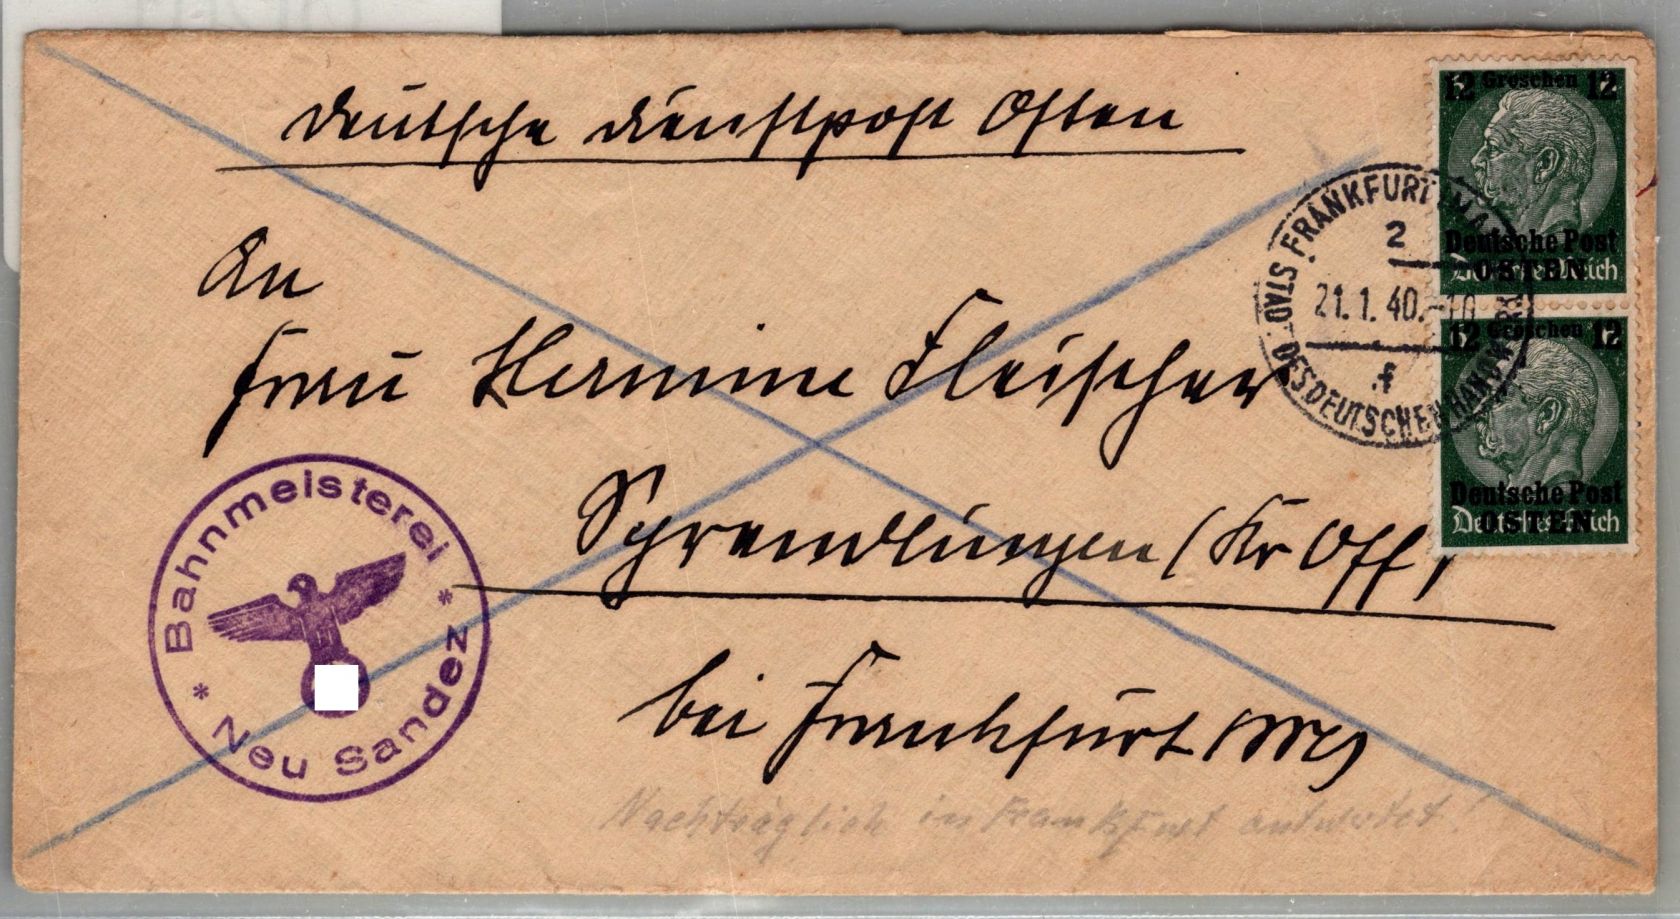 Deutsche Dienstpost Osten
An
Frau Hermine Fleischer
Sprendlingen (Kr Off)
bei Frankfurt (M)
Nachträglich in Frankfurt entwertet!
Bahnmeisterei
* Neu Sandez *
STADT DES DEUTSCHEN HANDWERKS FRANKFURT (MAIN)
2
21.1.40.-10
f
12 Groschen 12
Deutsche Post
OSTEN
Deutsches Reich
12 Groschen 12
Deutsche Post
OSTEN
Deutsches Reich